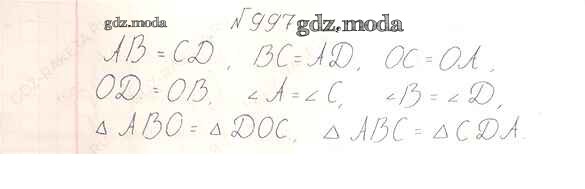 gdz.moda №997 gdz.moda
AB = CD, BC = AD, OC = OA,
OD = OB, ∠A = ∠C, ∠B = ∠D,
△ ABO = △ DOC, △ ABC = △ CDA.